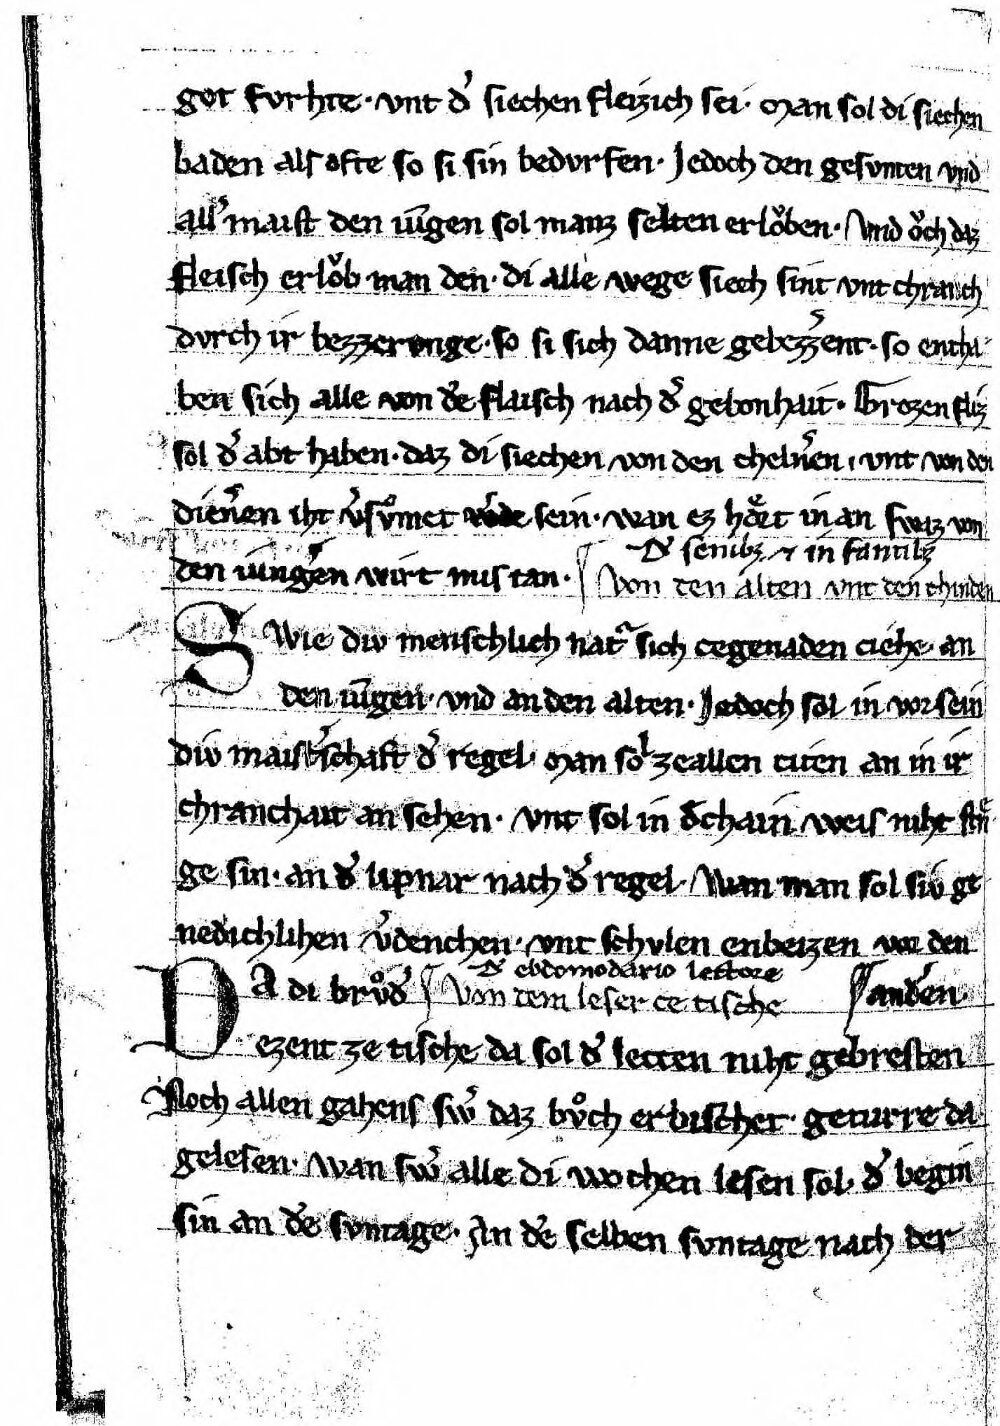 got fvrhte · vnt d̉ siechen fleizich sei · Man sol di siechen
baden alſ ofte so si sin bedvrfen · Jedoch den gesvnten vnd
all̉maist den iv̄gen sol manz selten erlǒben · Vnd ǒch daz
fleisch erlǒb man den · di alle wege siech sint vnt chranch
dvrch ir bezzervnge · so si sich danne gebezz̉ent · so entha-
ben sich alle von d̉e flaisch nach d̉ gebonhait · Grozen fliz
sol d̉ abt haben · daz di siechen von den cheln̉en · vnt von den
dien̉en iht v̉sv̊met sein · wan ez hőrt in an swaz von
D̉ senibꝫ ⁊ in fantibꝫ
den iung̉en wirt mistan · Von den alten vnt den chinden
Swie div menschlich nat̉ sich cegenaden ciehe · an
den iv̄gen · vnd an den alten · Jedoch sol in vor sein
div maist̉schaft d̉ regel · Man sol zeallen citen an in ir
chranchait an sehen · vnt sol in d̉chain weis niht stre̅-
ge sin · an d̉ lipnar nach d̉ regel · Wan man sol siv ge
nedichlihen v̉denchen · vnt schvlen enbeizen vor den
D̉ ebdomodario lectore
Da di brv̊d̉ Von dem leser ce tische and̉en ·
ezent ze tische da sol d̉ letzen niht gebresten
Noch allen gahens sw̉ daz bv̊ch erbischet · geturre da
gelesen · wan sw̉ alle di wochen lesen sol · d̉ begin
sin an d̉e svntage · An d̉e selben svntage nach der